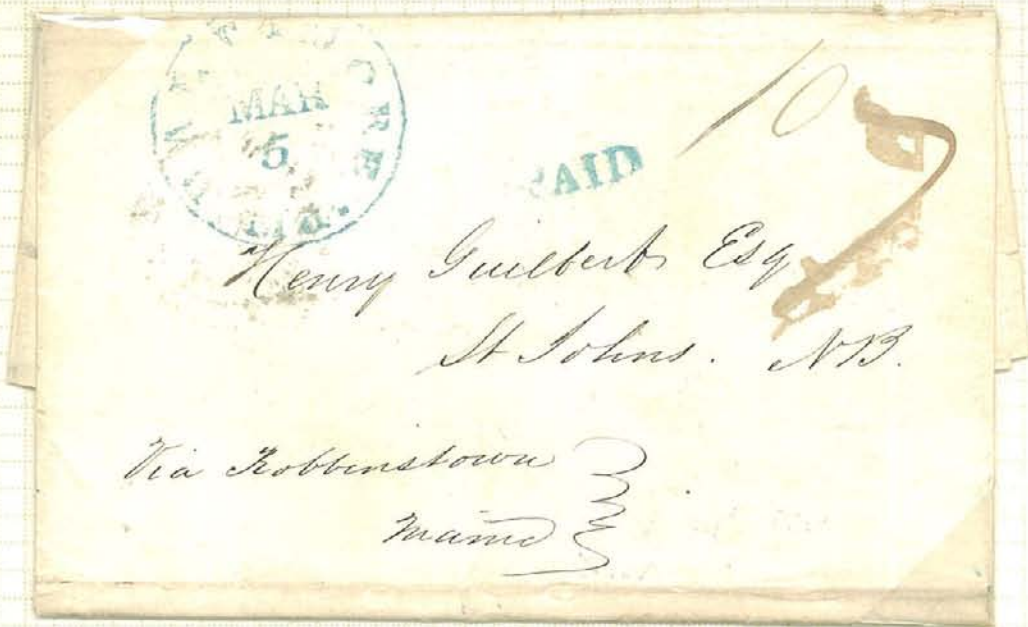 BALTIMORE
MAR
5
Md.
PAID
10
7
Henry Guilbert Esq
St Johns. NB.
Via Robbinstown
Maine